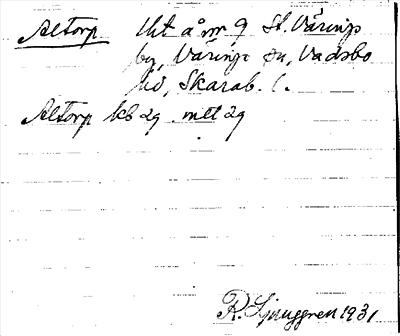 Altorp Lht å nr 9 St. Väringe
by, Väringe sn, Vadsbo
hd, Skarab. l.
Altorp kb 29 mtl 29
R. Ljunggren 1931